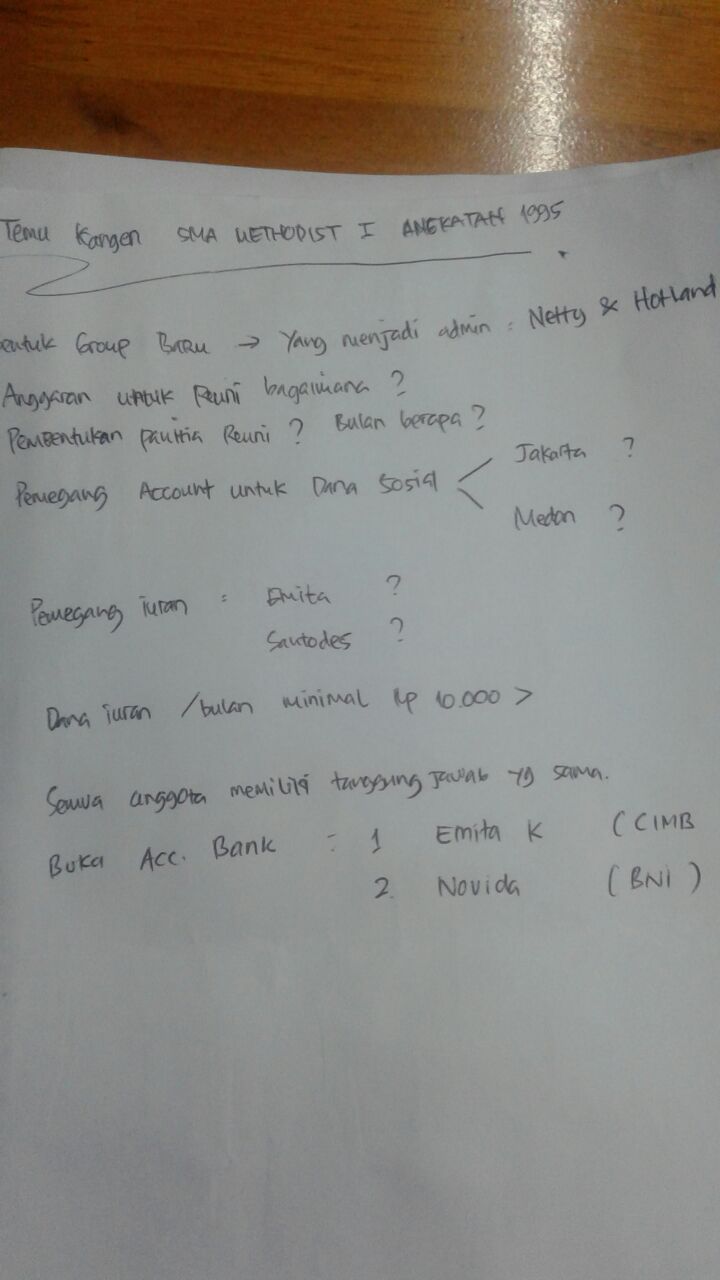 Temu Kangen SMA METHODIST I ANGKATAN 1995
entuk Group BARU → Yang menjadi admin : Netty & Hotland
Anggaran untuk Reuni bagaimana ?
Pembentukan panitia Reuni ? Bulan berapa ?
Pemegang Account untuk Dana Sosial < Jakarta ?
Medan ?
Pemegang iuran : Emita ?
Santodes ?
Dana iuran /bulan minimal Rp 10.000 >
Semua anggota memiliki tanggung jawab yg sama.
Buka Acc. Bank : 1 Emita K (CIMB
2. Novida (BNI)